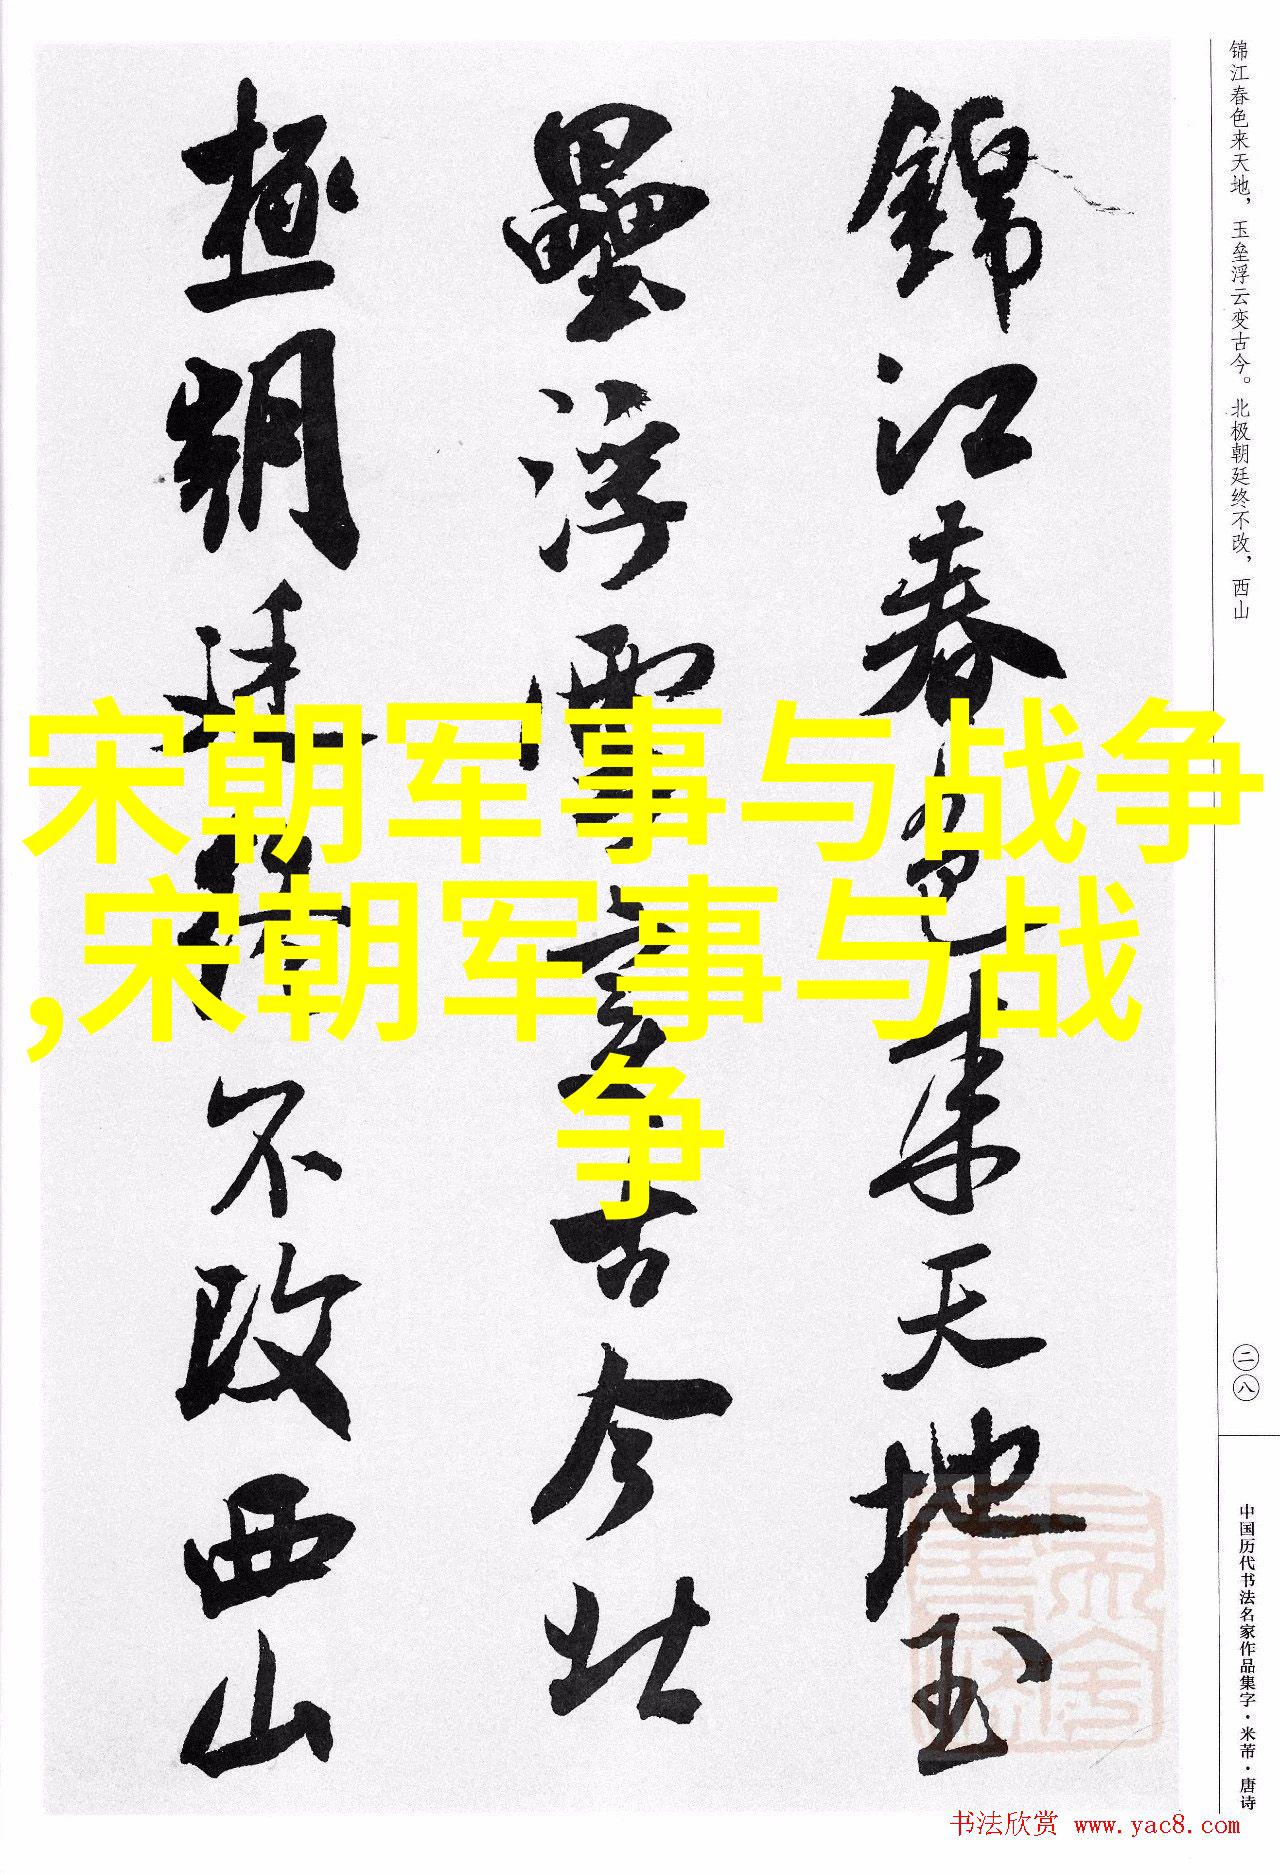 锦江春色来天地，玉垒浮云变古今。北极朝廷终不改，西山
錦江春色来天地玉
壘浮雲變古今北
極朝廷終不改西山
宋朝军事与战争
,宋朝军事与战
争
二八
中国历代书法名家作品集字·米芾·唐诗
书法欣赏 www.yac8.com